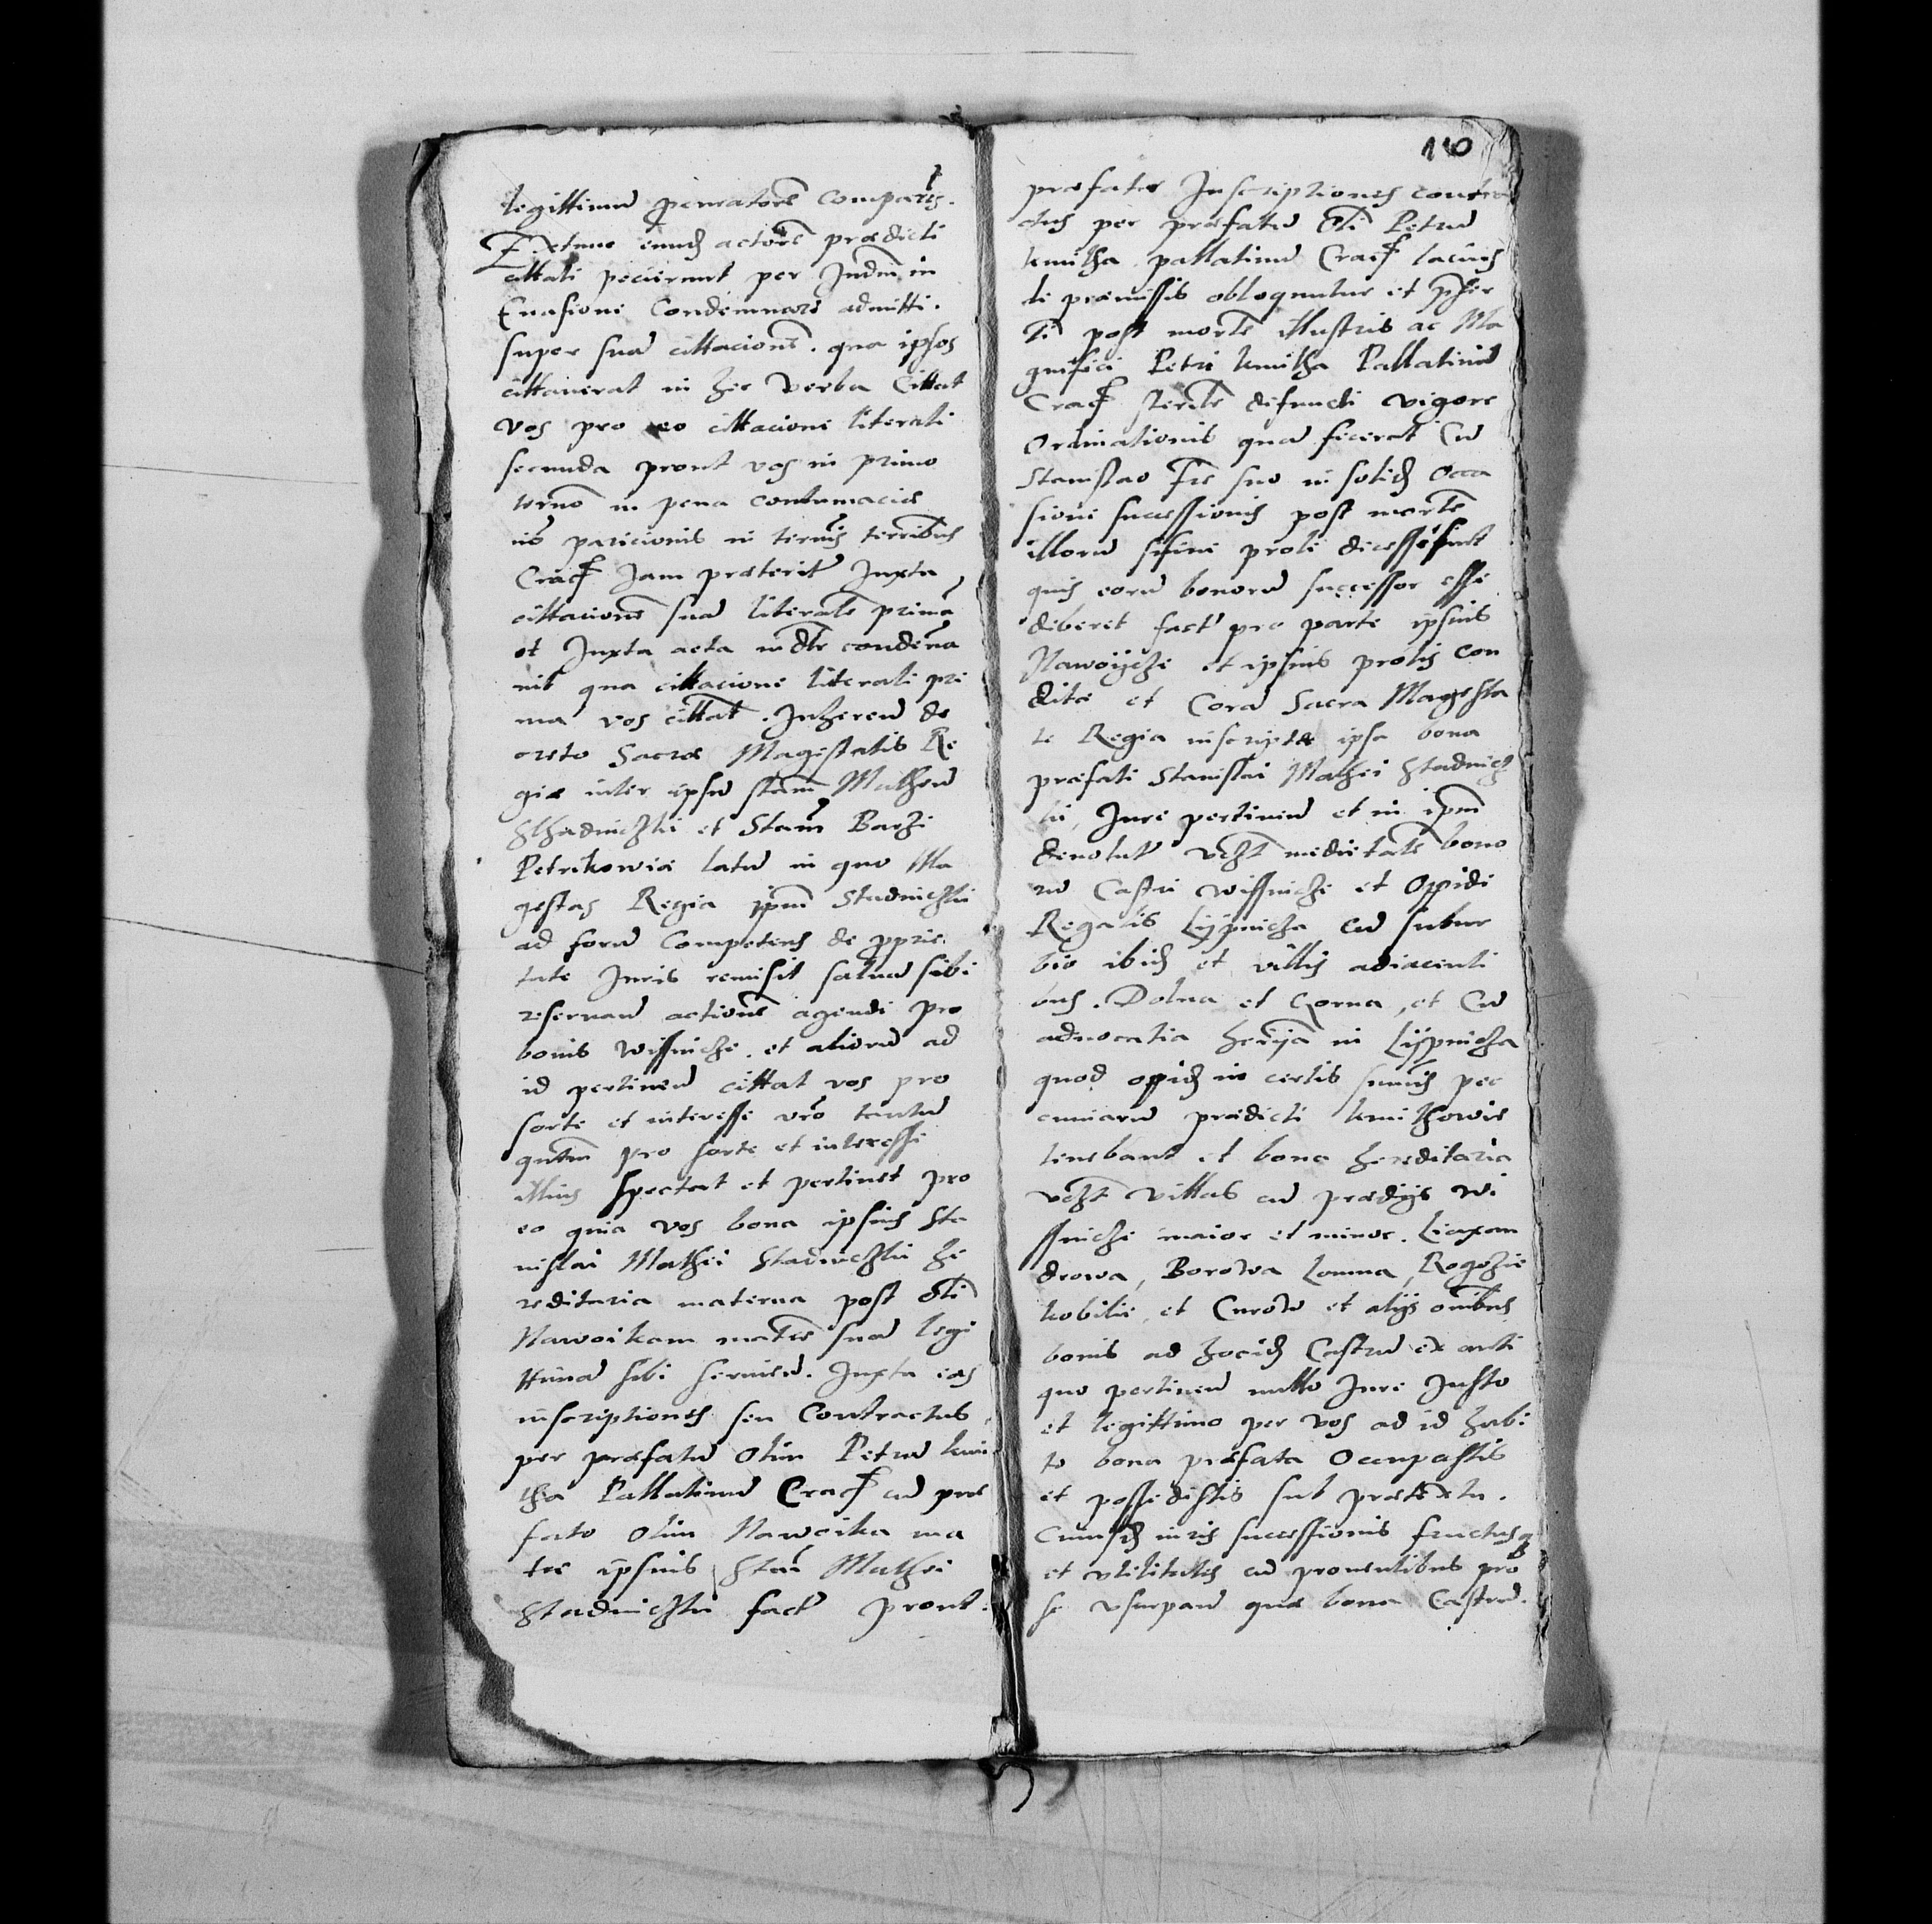 legittimu procuratore Comparens.
Ex tunc eund actore prædicti
cittati pecierunt per Judm in
Evasione Condemnare admitti.
super sua cittacione. qua ipsos
cittauerat in hec verba Cittat
vos pro eo cittacione literali
secunda prout vos in primo
termo in pena contumacie
no paricionis in termis terribus
Crac Jam præterit Juxta
cittacione sua literale prima
et Juxta acta inde condemna
nit qua cittacione literali pri
ma vos cittat. Inherend de
creto Sacræ Magestatis Re
giæ inter ipsu stam Matheu
Sthadniczki et Stam Barzi
Petrikowiæ latu in quo Ma
gestas Regia ipm Stadniczki
ad foru Competens de pprie
tate Juris remisit saluā sibi
reseruand actione agendi pro
bonis Wissnicze. et alioru ad
id pertinen cittat vos pro
sorte et interesse vro tantu
qntm pro sorte et interesse
illius spectat et pertinet pro
eo quia vos bona ipsius Sta
nislai Mathei Stadniczki he
reditaria materna post oli
Nawoikam matre sua legi
ttima sibi seruien. Juxta eas
inscriptiones seu Contractus
per præfatu Olim Petru kmi
tha Pallatinu Crac cu præ
fato olim Nawoika ma
tre ipsius Stan Mathei
Stadniczki fact prout.
110
præfatæ Inscriptiones contra
ctus per præfatu oli Petru
kmitha pallatinu Crac lacius
de præmissis obloquntur et pser
ti post morte illustris ac Ma
gnifici Petri kmitha Pallatini
Crac sterile defuncti vigore
Ordinationis qua fecerat Cu
Stanislao Fre suo in solid Occa
sione successionis post morte
illoru si sine prole decesserint
quis eoru bonoru successor esse
deberet fact pro parte ipsius
Nawoijcze et ipsius prolis con
dite et Cora Sacra Magesta
te Regia inscriptæ ipsa bona
præfati Stanislai Mathei Stadnicz
ki, Jure pertinen et in ipm
deuolut vczt medietate bono
ru Castri Wissnicze et Oppidi
Regalis Lypnicza cu subur
bio ibid et villis adiacenti
bus. Dolna et Gorna, et Cu
aduocatia herija in Lijpnicza
quod oppid in certis sumis pec
cuniaru prædicti kmithowie
tenebant et bona hereditaria
vczt villas cu prædijs Wi
ssnicze maior et minor. Lexan
drowa, Borowa Lomna, Rogozie
kobilie, et Curow et alijs omibus
bonis ad hocid Castru ex anti
quo pertinen nullo Jure Justo
et legittimo per vos ad id habi
to bona præfata Occupastis
et possedistis sub prætextu.
Cuiusd iuris successionis fructusq
et vtilitates cu prouentibus pro
se vsurpand quæ bona Castru.